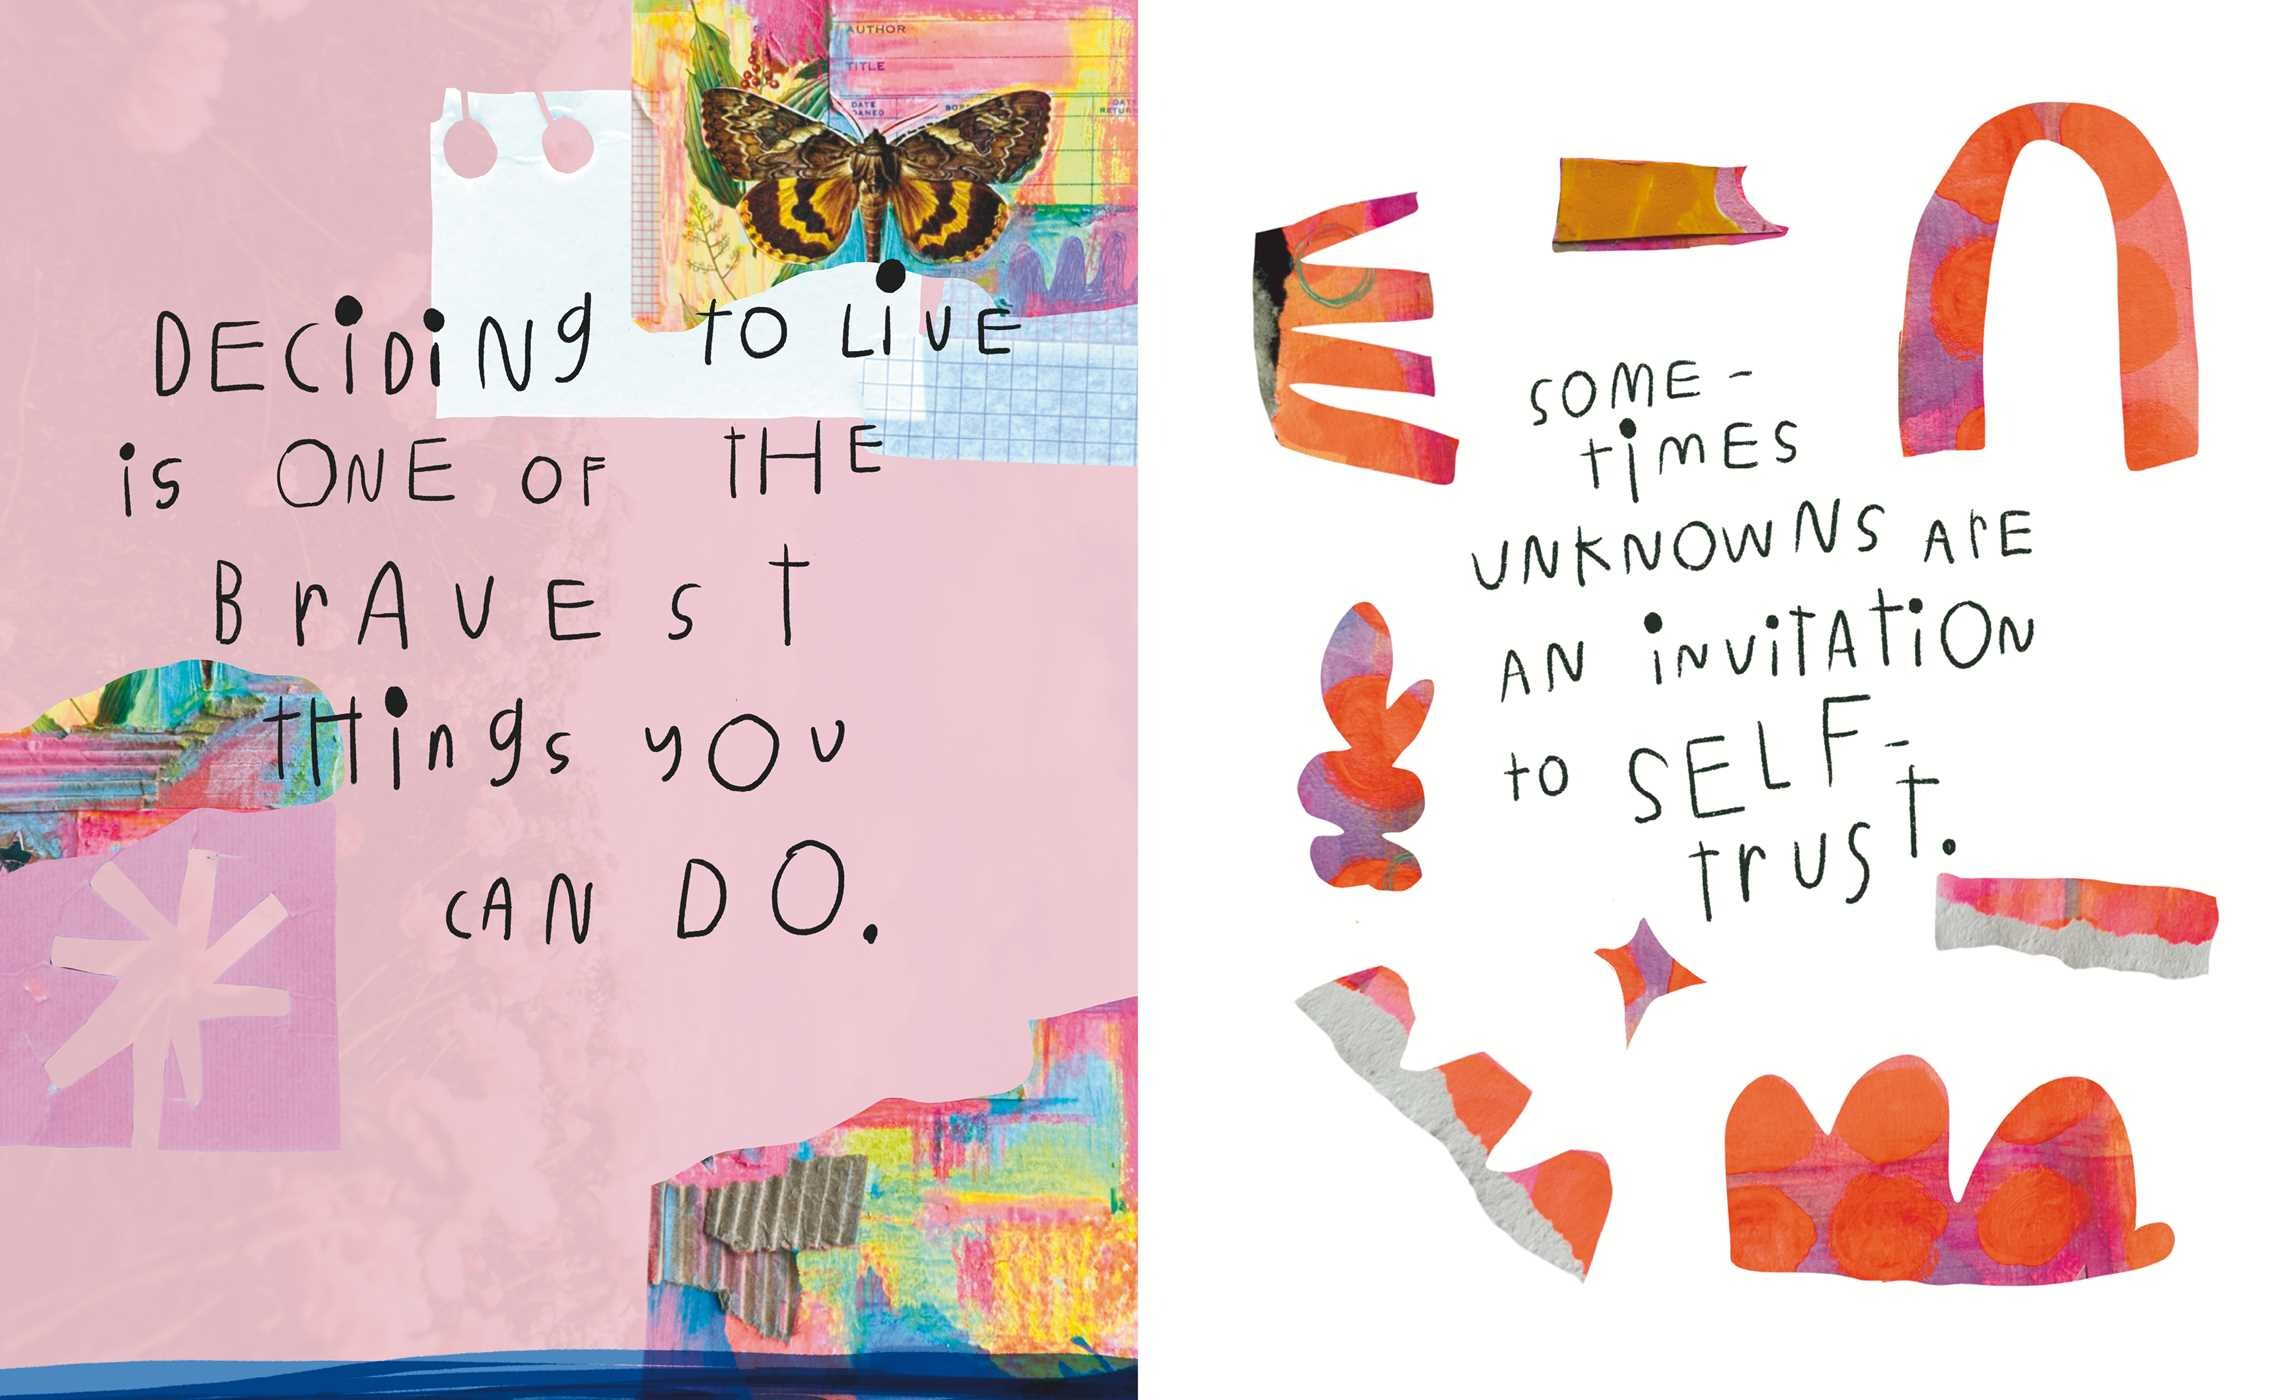 AUTHOR
TITLE
DATE
DECiDiNg tO LiVE
is ONE OF tHE
BrAVEst
tHings yOu
CAN DO.
SOME-
tiMES
UNKNOWNS ArE
AN iNVitAtiON
to SELF-
trUSt.